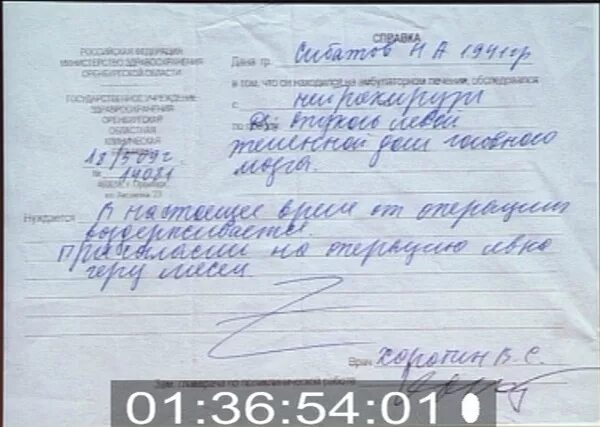 РОССИЙСКАЯ ФЕДЕРАЦИЯ
МИНИСТЕРСТВО ЗДРАВООХРАНЕНИЯ
ОРЕНБУРГСКОЙ ОБЛАСТИ
ГОСУДАРСТВЕННОЕ УЧРЕЖДЕНИЕ
ЗДРАВООХРАНЕНИЯ
ОРЕНБУРГСКАЯ
ОБЛАСТНАЯ
КЛИНИЧЕСКАЯ
18/5 09г.
№ 14081
СПРАВКА
Дана гр. Сибатов Н А 1941гр
в том, что он находился на амбулаторном лечении, обследовался
с нейрохирург
по Ds: опухоль левой
теменной доли головного
мозга.
Нуждается В настоящее время от операции
воздерживается.
При согласии на операцию явка
Врач Хоропин В. С.
Зам. главврача по поликлинической работе
01:36:54:01